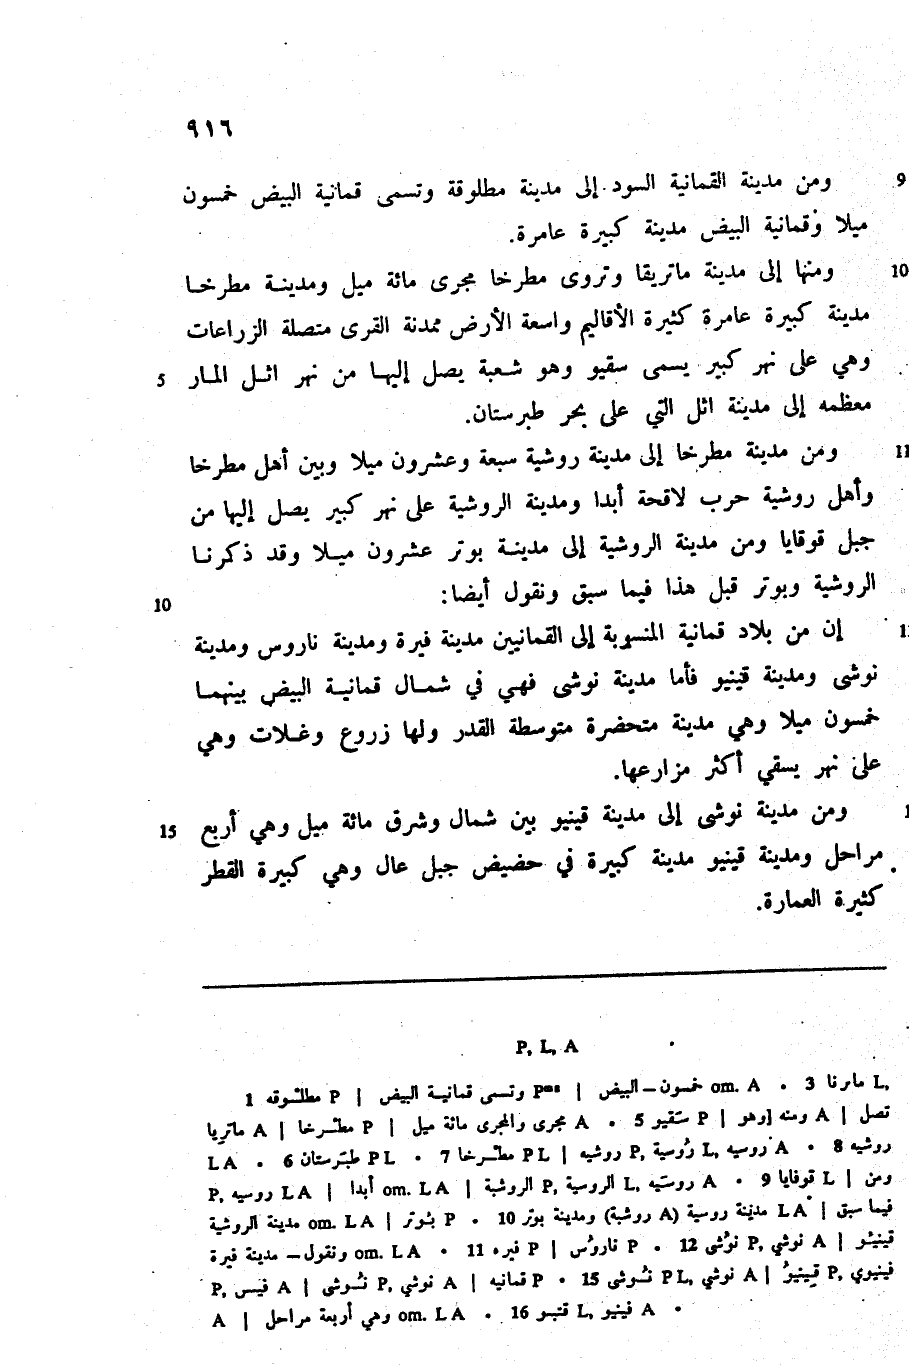 ٩١٦
9 ومن مدينة القمانية السود إلى مدينة مطلوقة وتسمى قمانية البيض خمسون
ميلا وقمانية البيض مدينة كبيرة عامرة.
10 ومنها إلى مدينة ماتريقا وتروى مطرخا مجرى مائة ميل ومدينة مطرخا
مدينة كبيرة عامرة كثيرة الأقاليم واسعة الأرض ممدنة القرى متصلة الزراعات
وهي على نهر كبير يسمى سقيو وهو شعبة يصل إليها من نهر اثل المار 5
معظمه إلى مدينة اثل التي على بحر طبرستان.
11 ومن مدينة مطرخا إلى مدينة روشية سبعة وعشرون ميلا وبين أهل مطرخا
وأهل روشية حرب لاقحة أبدا ومدينة الروشية على نهر كبير يصل إليها من
جبل قوقايا ومن مدينة الروشية إلى مدينة بوتر عشرون ميلا وقد ذكرنا
الروشية وبوتر قبل هذا فيما سبق ونقول أيضا: 10
إن من بلاد قمانية المنسوبة إلى القمانيين مدينة فيرة ومدينة ناروس ومدينة
نوشى ومدينة قينيو فأما مدينة نوشى فهي في شمال قمانية البيض بينهما
خمسون ميلا وهي مدينة متحضرة متوسطة القدر ولها زروع وغلات وهي
على نهر يسقي أكثر مزارعها.
ومن مدينة نوشى إلى مدينة قينيو بين شمال وشرق مائة ميل وهي أربع 15
مراحل ومدينة قينيو مدينة كبيرة في حضيض جبل عال وهي كبيرة القطر
كثيرة العمارة.
P, L, A
1 مطلوقه P | وتسمى قمانية البيض Pᵐᵍ | خمسون – البيض om. A • 3 مارنا L,
ماتريا A | مطرخا P | مجرى والمجرى مائة ميل A • 5 سقيو P | ومنه [وهو A | تصل
LA • 6 طبرستان PL • 7 مطرخا PL | روشيه P, روسية L, روسيه A • 8 روشيه
P, روسيه LA | أبدا om. LA | الروشية P, الروسية L, روسيه A • 9 قوفايا L | ومن
مدينة الروشية om. LA | بوتر P • 10 مدينة روسية (روشية A) ومدينة بوتر LA | فيما سبق
ونقول – مدينة فيرة om. LA • 11 فيره P | ناروس P • 12 نوشى P, نوشي A | قينيو
P, فيس A | نوشى P, نوشي A | قمانيه P • 15 نوشى PL, نوشي A | قينيو P, فينيوي
A | وهي أربعة مراحل om. LA • 16 قنبو L, فينيو A •